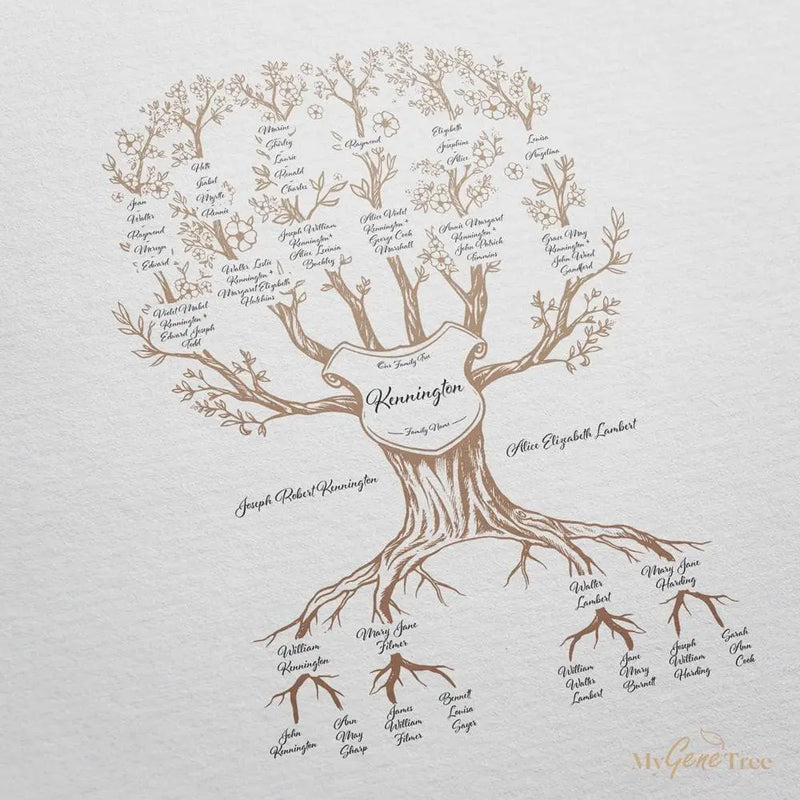 Jean
Walter
Raymond
Mervyn
Edward
Isabel
Myrtle
Ronnie
Maxine
Shirley
Laurie
Ronald
Charles
Raymond
Elizabeth
Josephine
Alice
Louisa
Angelina
Violet Mabel
Kennington +
Edward Joseph
Todd
Walter Leslie
Kennington +
Margaret Elizabeth
Hutchins
Joseph William
Kennington +
Alice Lavinia
Buckley
Alice Violet
Kennington +
George Cook
Marshall
Annie Margaret
Kennington +
John Patrick
Timmins
Grace May
Kennington +
John Wood
Sandford
Our Family Tree
Kennington
Family Name
Joseph Robert Kennington
Alice Elizabeth Lambert
William
Kennington
Mary Jane
Filmer
Walter
Lambert
Mary Jane
Harding
John
Kennington
Ann
May
Sharp
James
William
Filmer
Bennett
Louisa
Sayer
William
Walter
Lambert
Jane
Mary
Burnett
Joseph
William
Harding
Sarah
Ann
Cook
MyGeneTree